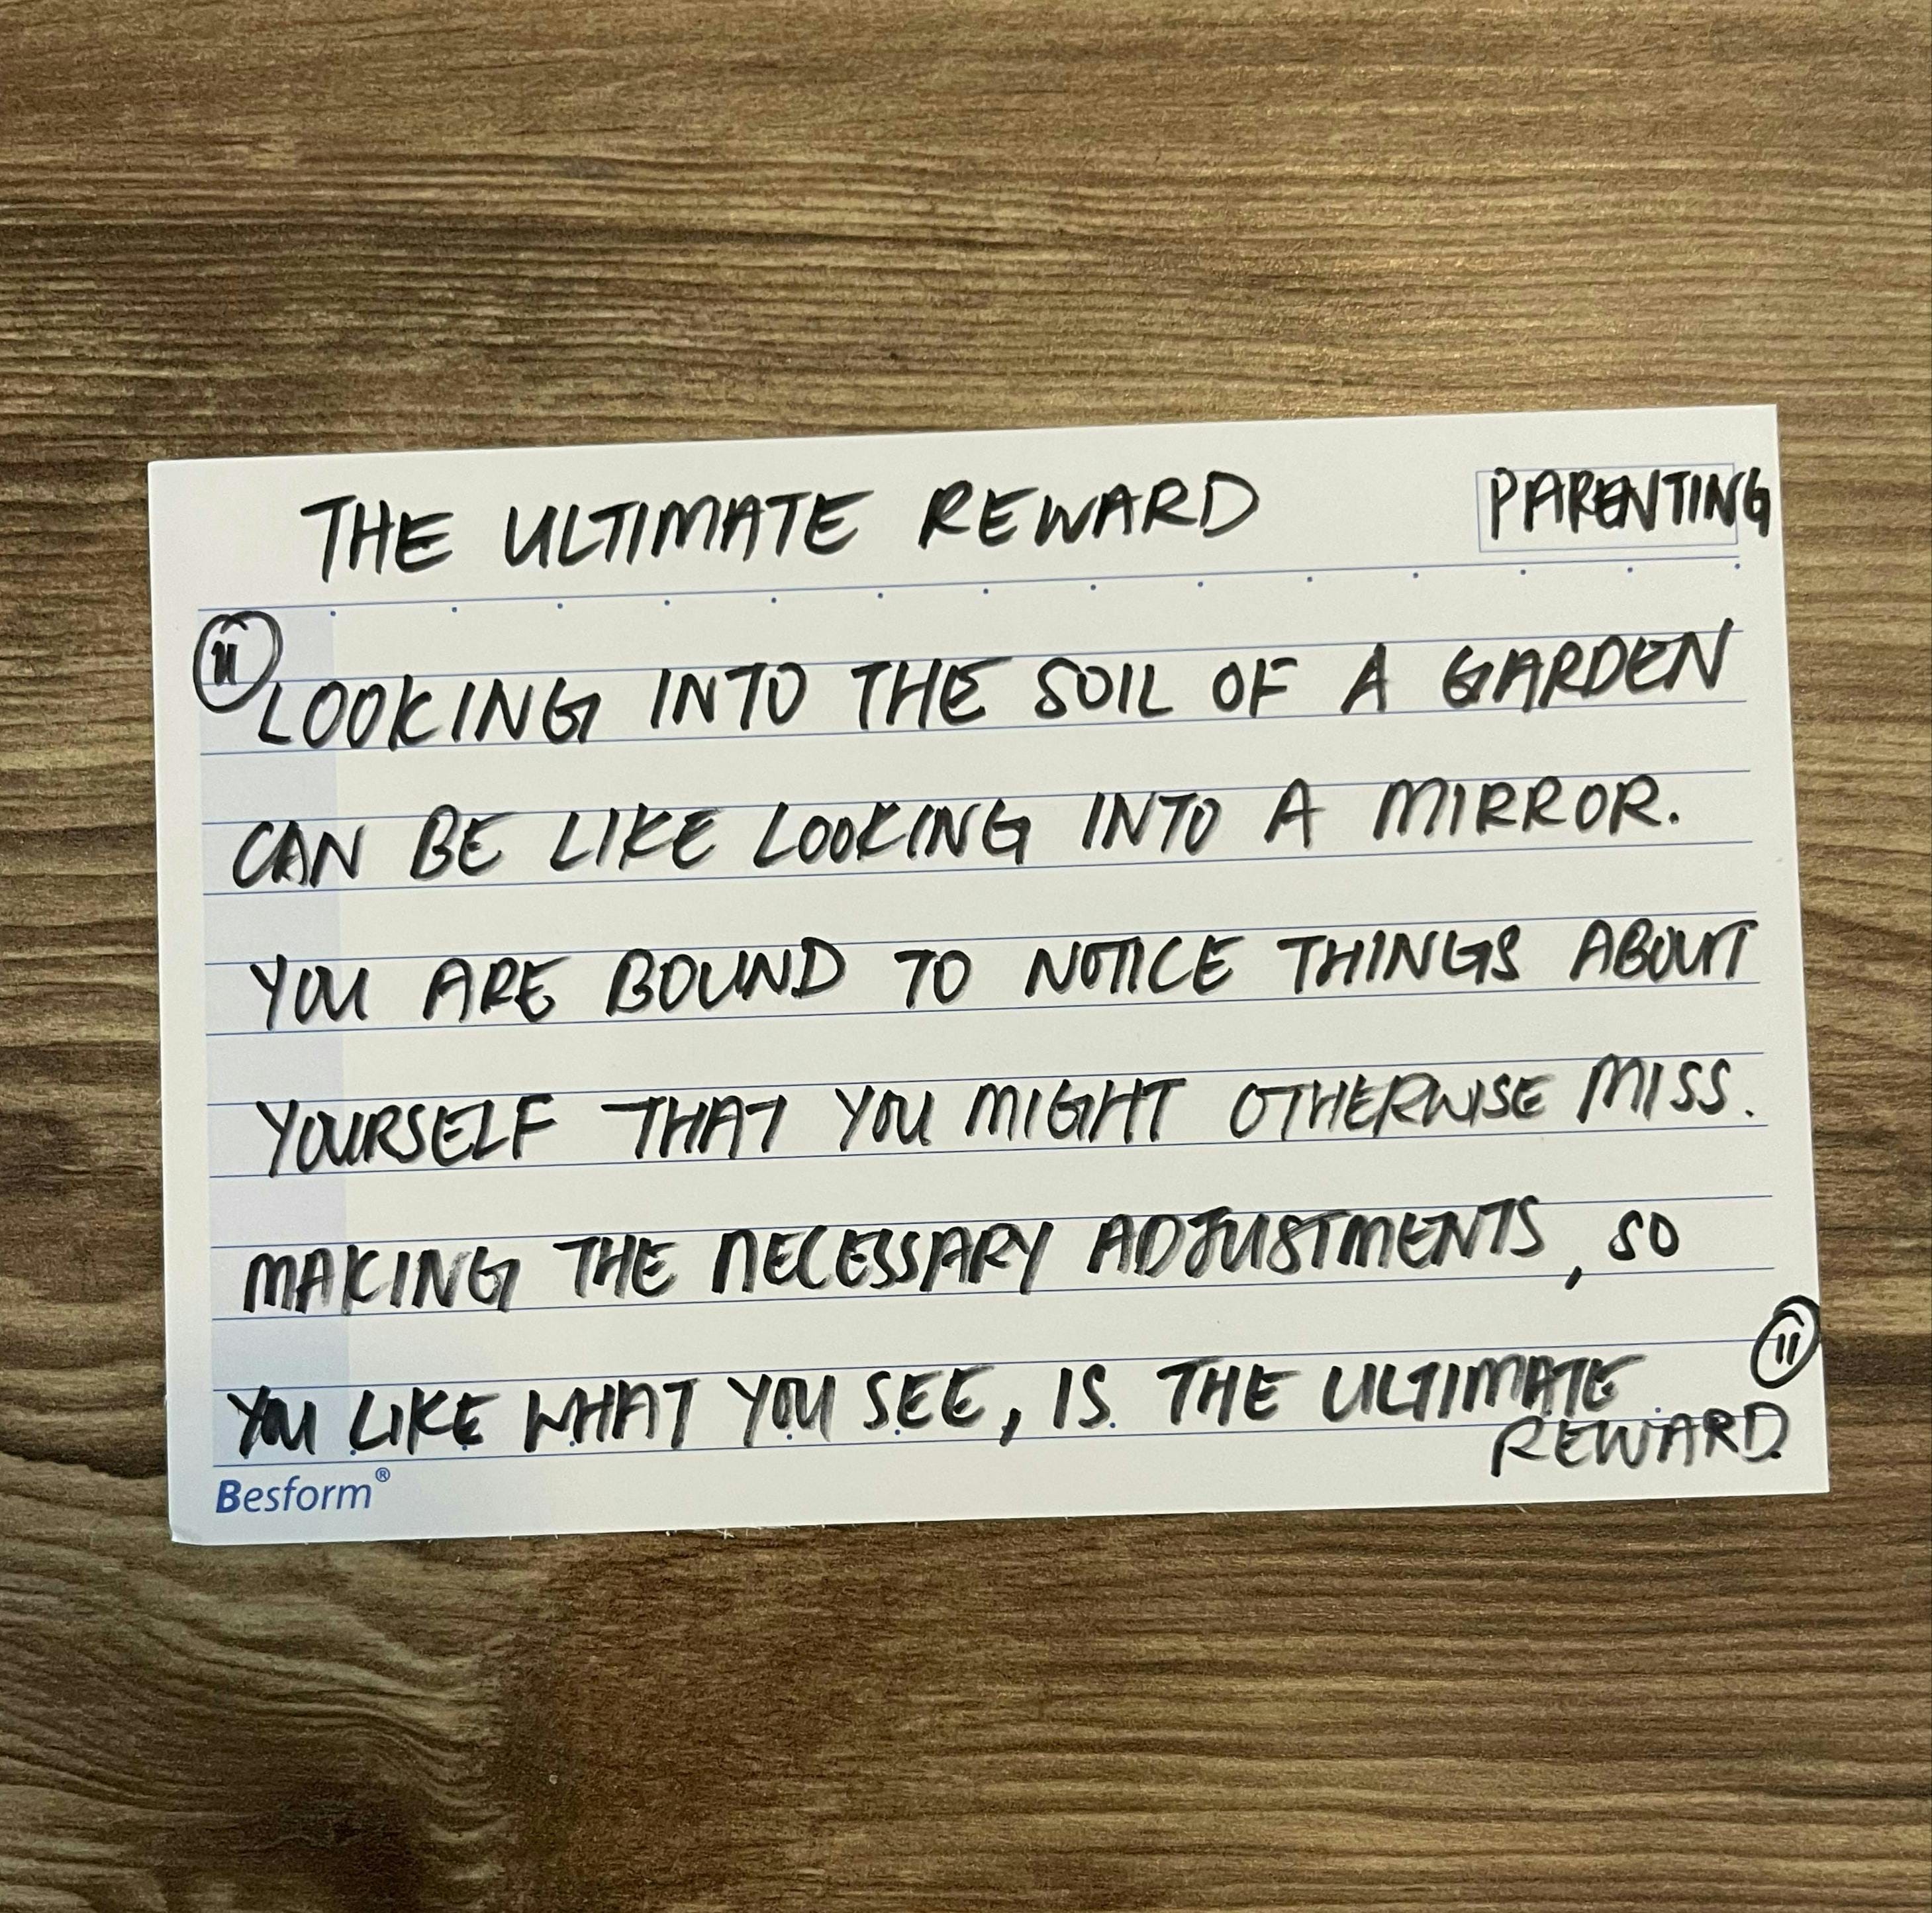 THE ULTIMATE REWARD
PARENTING
"LOOKING INTO THE SOIL OF A GARDEN
CAN BE LIKE LOOKING INTO A MIRROR.
YOU ARE BOUND TO NOTICE THINGS ABOUT
YOURSELF THAT YOU MIGHT OTHERWISE MISS.
MAKING THE NECESSARY ADJUSTMENTS, SO
YOU LIKE WHAT YOU SEE, IS THE ULTIMATE
REWARD."
Besform®